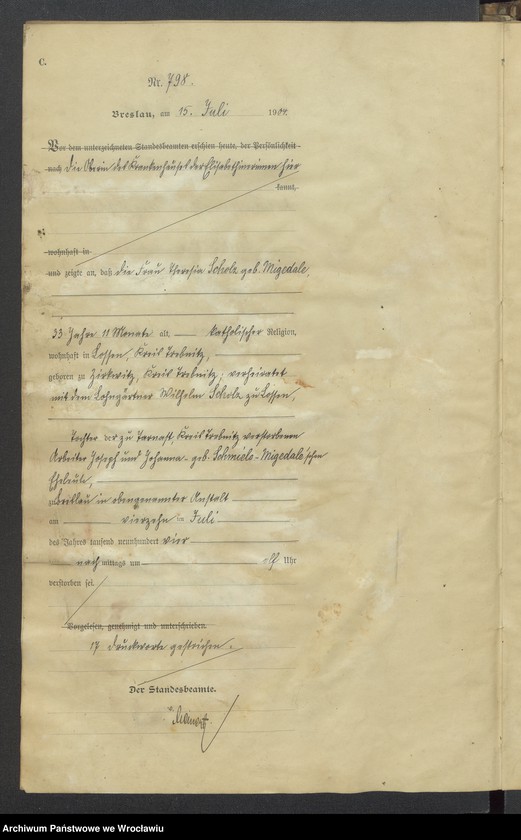 C.
Nr. 798.
Breslau, am 15. Juli 1904.
Vor dem unterzeichneten Standesbeamten erschien heute, der Persönlichkeit
nach die Oberin des Krankenhauses der Elisabethinerinnen hier
kannt,
wohnhaft in
und zeigte an, daß die Frau Theresia Scholz geb. Migedale,
33 Jahre 11 Monate alt, katholischer Religion,
wohnhaft in Lossen, Kreis Trebnitz,
geboren zu Zirkwitz, Kreis Trebnitz, verheiratet
mit dem Lohngärtner Wilhelm Scholz zu Lossen,
Tochter der zu Tarnast, Kreis Trebnitz verstorbenen
Arbeiter Joseph und Johanna geb. Schmiels-Migedale'schen
Eheleute,
zu Breslau in obengenannter Anstalt
am vierzehnten Juli
des Jahres tausend neunhundert vier
nachmittags um Uhr
verstorben sei.
Vorgelesen, genehmigt und unterschrieben.
17 Druckworte gestrichen.
Der Standesbeamte.
Archiwum Państwowe we Wrocławiu